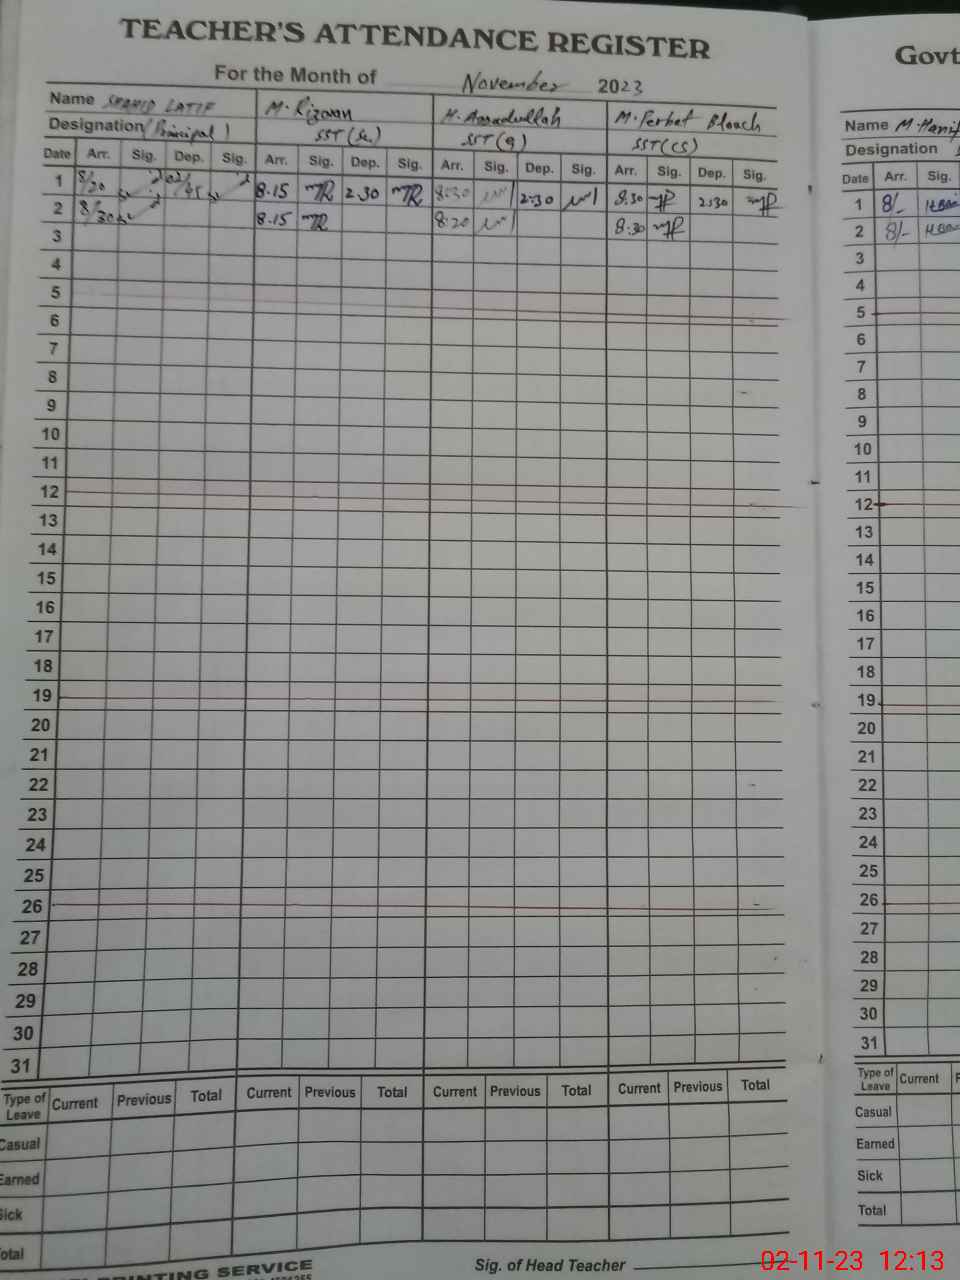 TEACHER'S ATTENDANCE REGISTER
For the Month of November 2023
Name SHAHID LATIF M. Rizwan H. Asadullah M. Ferhat Bloach
Designation (Principal) SST (Sc) SST (g) SST (CS)
Date Arr. Sig. Dep. Sig. Arr. Sig. Dep. Sig. Arr. Sig. Dep. Sig. Arr. Sig. Dep. Sig.
1 8/20 02/45 8.15 MR 2.30 MR 8:30 2:30 8:30 2:30
2 8/30 8.15 MR 8:20 8:30
3
4
5
6
7
8
9
10
11
12
13
14
15
16
17
18
19
20
21
22
23
24
25
26
27
28
29
30
31
Type of Leave Current Previous Total Current Previous Total Current Previous Total Current Previous Total
Casual
Earned
Sick
Total
PRINTING SERVICE
Sig. of Head Teacher
Govt
Name M. Hanif
Designation
Date Arr. Sig.
1 8/-
2 8/-
3
4
5
6
7
8
9
10
11
12
13
14
15
16
17
18
19
20
21
22
23
24
25
26
27
28
29
30
31
Type of Leave Current P
Casual
Earned
Sick
Total
02-11-23 12:13